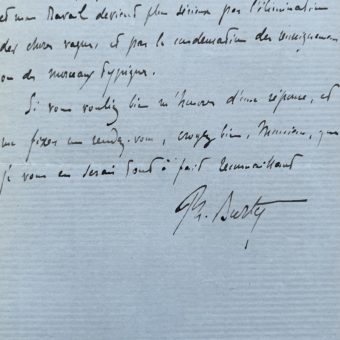 et mon travail devient plus sérieux par l'élimination
des choses vagues, et par la condensation des renseignements
ou des morceaux typiques.
Si vous vouliez bien m'honorer d'une réponse, et
me fixer un rendez-vous, croyez bien, Monsieur, que
je vous en serais tout à fait reconnaissant
Ph. Burty